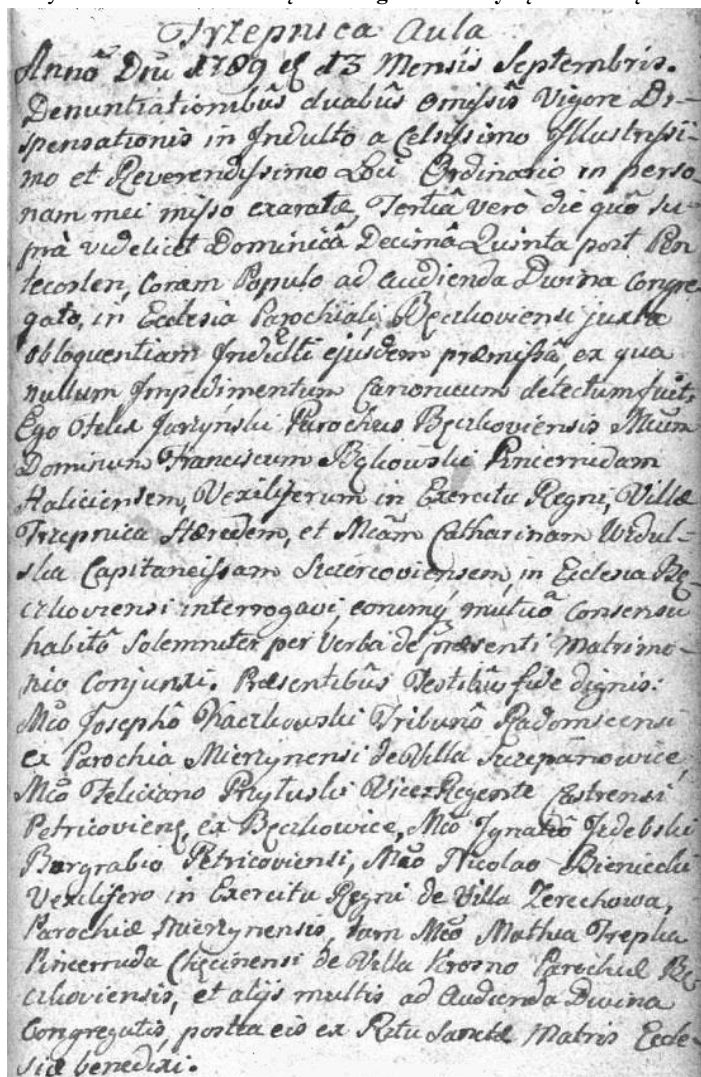 Trzepnica Aula
Annô Dni 1789 q d 13 Mensis Septembris.
Denuntiationibûs duabûs omissis Vigore Di-
spensationis in Indulto a Celsissimo Illustrissi-
mo et Reverendissimo Loci Ordinario in perso-
nam mei misso exaratæ, Tertiâ verò die quô su-
prà videlicet Dominicâ Decimâ Quinta post Pen
tecosten, Coram Populo ad audienda Divina Congre
gato, in Ecclesia Parochiali Bęczkoviensi juxta
obloquentiam Indulti ejusdem præmissâ, ex qua
nullum Impedimentum Canonicum detectum fuit,
Ego Jarzyński Parochus Bęczkoviensis Mcum
Dominum Franciscum Bąkowski Pincernidam
Haliciensem, Vexiliferum in Exercitu Regni, Villæ
Trzepnica Hæredem, et Mcam Catharinam Widul-
ska Capitaneissam Szczercoviensem, in Ecclesia Bę-
czkoviensi interrogavi, eorumq mutuô Consensu
habitô Solemniter per Verba de præsenti Matrimo-
nio Conjunxi. Præsentibûs Testibûs fide dignis:
Mco Josephô Kaczkowski Tribunô Radomscensi
ex Parochia Mierzynensi de Villa Szczepanowice,
Mco Feliciano Przyłuski Vice Regente Castrensi
Petricovienę, ex Bęczkowice, Mco Ignatiô Izdebski
Burgrabio Petricoviensi, Mco Nicolao Bieniecki
Vexilifero in Exercitu Regni de Villa Zerechowa,
Parochiæ Mierzynensis, tam Mco Mathia Trepka
Pincernida Chęcinensi de Villa Krosno Parochiæ Bę-
czkoviensis, et alijs multis ad Audienda Divina
Congregatis, postea eis ex Ritu Sanctæ Matris Eccle-
siæ benedixi.